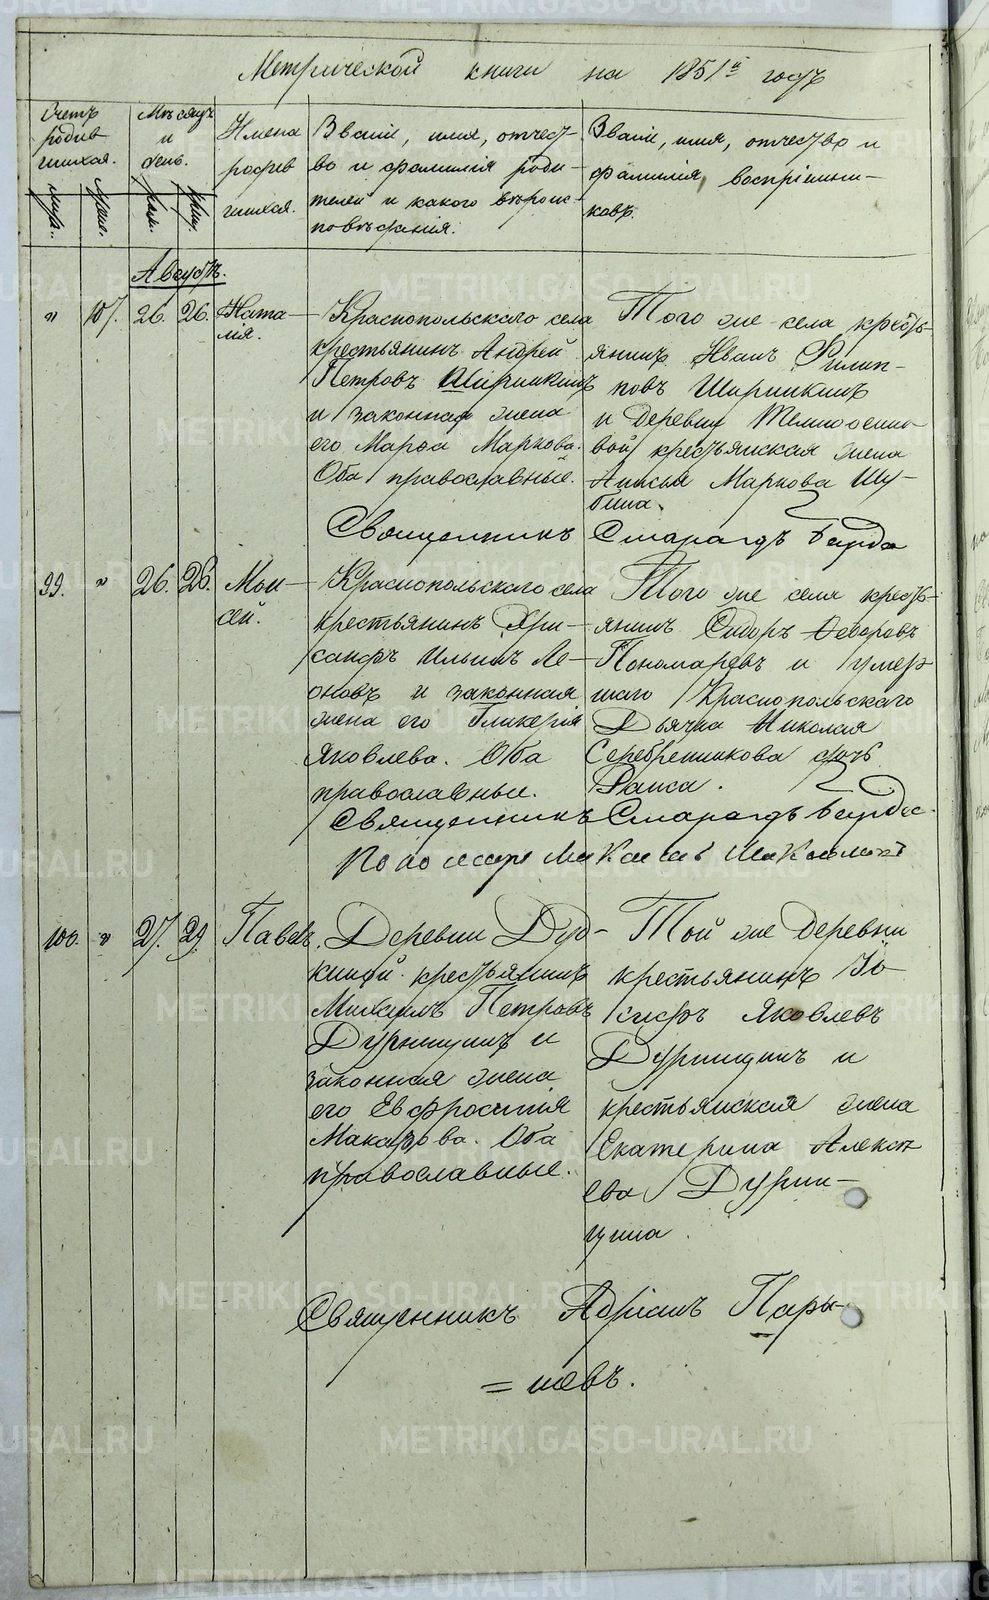 Метрической книги на 1851й годъ
Счетъ родив шихся.
муж. жен.
Мѣсяцъ и день.
рож. кр.
Имена родив шихся.
Званіе, имя, отчест-
во и фамилія роди-
телей и какого вѣроис-
повѣданія.
Званіе, имя, отчество и
фамилія воспріемни-
ковъ.
Августъ.
" 107. 26. 26. Ната-
лія.
Краснопольского села
крестьянинъ Андрей
Петровъ Ширинкинъ
и законная жена
его Марѳа Маркова.
Оба православные.
Того же села кресть-
янинъ Иванъ Филип-
повъ Ширинкинъ
и деревни
вой крестьянская жена
Анисья Маркова Шу-
бина.
Священникъ Смарагдъ
99. " 26. 28. Мои-
сей.
Краснопольского села
крестьянинъ Хри-
санфъ Ильинъ Ле-
оновъ и законная
жена его Гликерія
Яковлева. Оба
православные.
Того же села кресть-
янинъ Сидоръ Ѳедоровъ
Пономаревъ и умер-
шаго Краснопольскаго
Дьячка Николая
Серебренникова дочь
Раиса.
Священникъ Смарагдъ
100. " 27. 29. Павелъ.
Деревни Дур-
киной крестьянинъ
Михаилъ Петровъ
Дурницынъ и
законная жена
его Евфросинія
Макарова. Оба
православные.
Той же деревни
крестьянинъ Іо-
сифъ Яковлевъ
Дурницынъ и
крестьянская жена
Екатерина Алексѣ
ева Дурни-
цына.
Священникъ Адріанъ Пары-
= шевъ.
METRIKI.GASO-URAL.RU